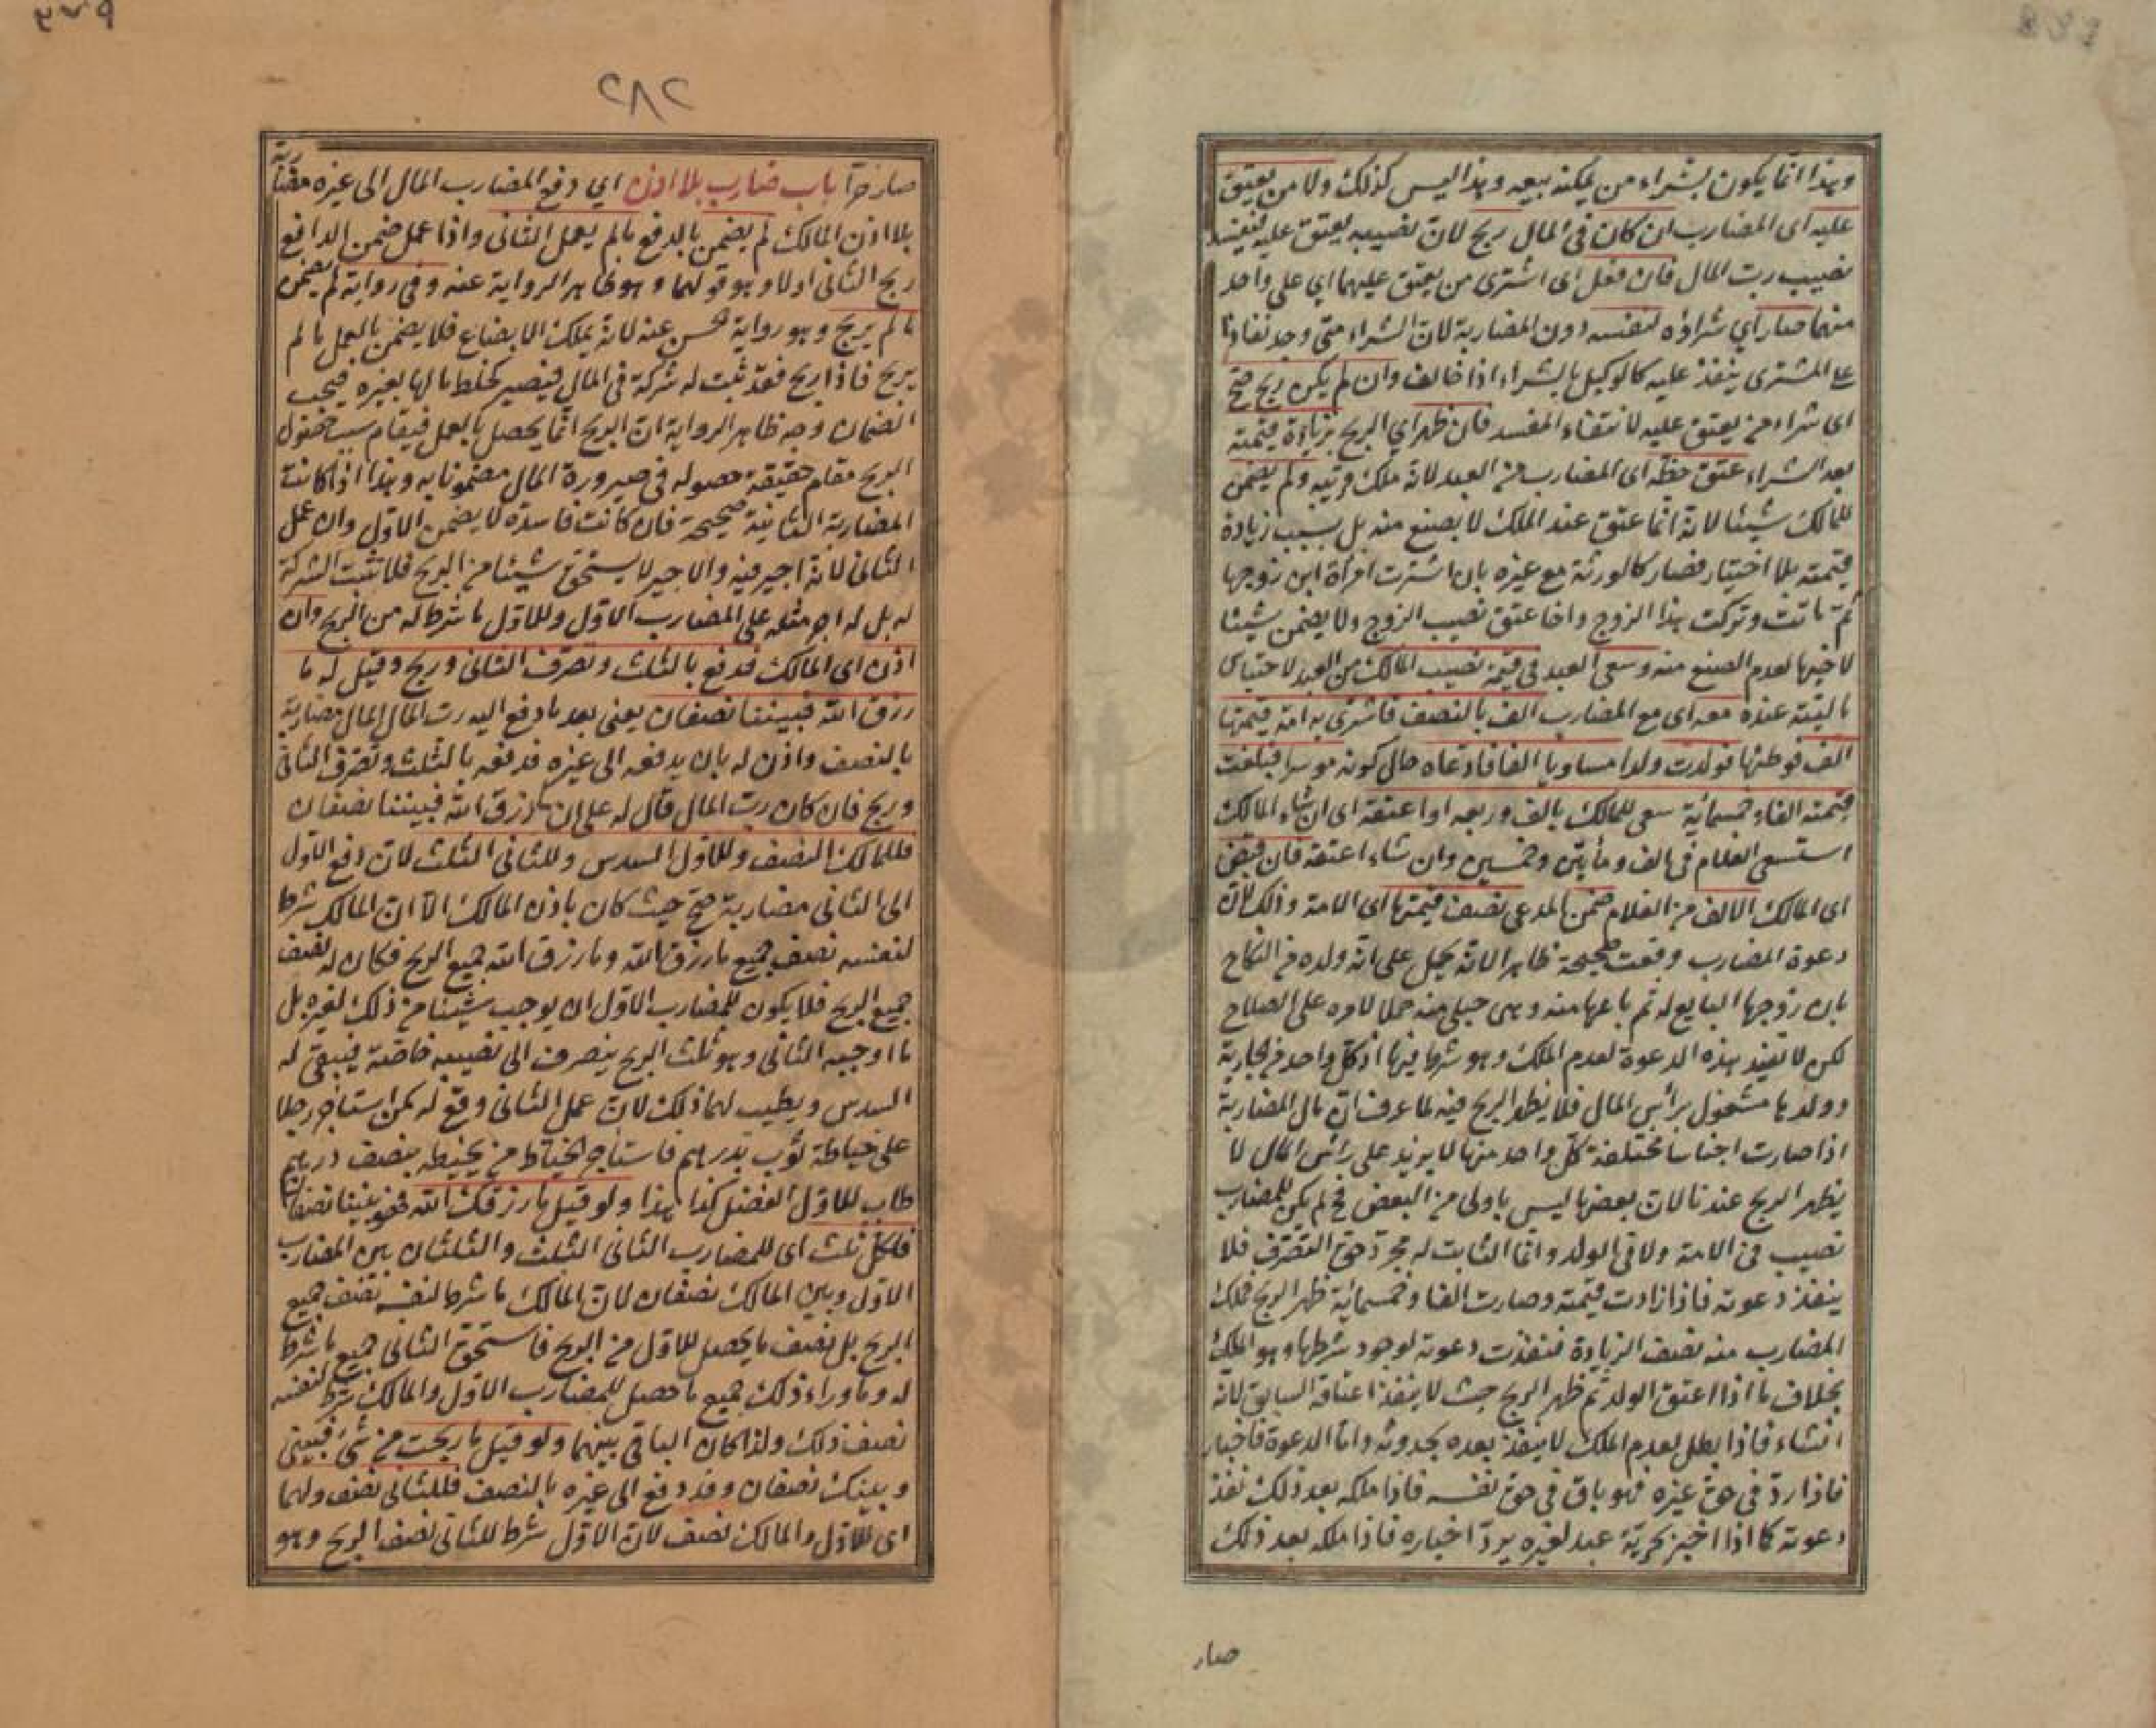 وهذا انما يكون بشراء من يمكنه بيعه وهذا ليس كذلك ولا من يعتق
عليه اى المضارب ان كان فى المال ربح لان نصيبه يعتق عليه فيفسد
نصيب رب المال فان فعل اى اشترى من يعتق عليهما اي على واحد
منهما صار اي شراؤه لنفسه دون المضاربة لان الشراء متى وجد نفاذا
على المشترى ينفذ عليه كالوكيل بالشراء اذا خالف وان لم يكن ربح صح
اى شراء من يعتق عليه لانتفاء المفسد فان ظهر اي الربح بزيادة قيمته
بعد الشراء عتق حظه اى المضارب من العبد لانه ملك قريبه ولم يضمن
للمالك شيئا لانه انما عتق عند الملك لا بصنع منه بل بسبب زيادة
قيمته بلا اختيار فصار كالورثة مع غيره بان اشترت امرأة ابن زوجها
ثم ماتت وتركت هذا الزوج واخا عتق نصيب الزوج ولا يضمن شيئا
لاخيها لعدم الصنع منه وسعى العبد فى قيمة نصيب المالك من العبد لاحتباس
ماليته عنده معه اى مع المضارب الف بالنصف فاشترى به امة قيمتها
الف فوطئها فولدت ولدا مساويا الفا فادعاه حال كونه موسرا فبلغت
قيمته الفا وخمسمائة سعى للمالك بالف وربعه او اعتقه اى ان شاء المالك
استسعى الغلام فى الف ومأتين وخمسين وان شاء اعتقه فان قبض
اى المالك الالف من الغلام ضمن المدعى نصف قيمتها اى الامة وذلك لان
دعوة المضارب وقعت صحيحة ظاهرا لانه يحمل على انه ولده من النكاح
بان زوجها البايع له ثم باعها منه وهى حبلى منه حملا لامره على الصلاح
لكن لا تفيد هذه الدعوة لعدم الملك وهو شرط فيها اذ كل واحد من الجارية
وولدها مشغول برأس المال فلا يظهر الربح فيه لما عرف ان مال المضاربة
اذا صارت اجناسا مختلفة كل واحد منها لا يزيد على رأس المال لا
يظهر الربح عندنا لان بعضها ليس باولى من البعض فح لم يكن للمضارب
نصيب فى الامة ولا فى الولد وانما الثابت له مجرد حق التصرف فلا
ينفذ دعوته فاذا زادت قيمته وصارت الفا وخمسمائة ظهر الربح فملك
المضارب منه نصف الزيادة فنفذت دعوته لوجود شرطها وهو الملك
بخلاف ما اذا اعتق الولد ثم ظهر الربح حيث لا ينفذ اعتاقه السابق لانه
انشاء فاذا بطل لعدم الملك لا ينفذ بعده بحدوثه واما الدعوة فاخبار
فاذا رد فى حق غيره فهو باق فى حق نفسه فاذا ملكه بعد ذلك نفذ
دعوته كما اذا اخبر بحرية عبد لغيره يرد اخباره فاذا ملكه بعد ذلك
صار
٢٨٢
صار حرا باب ضارب بلا اذن اي دفع المضارب المال الى غيره مضاربة
بلا اذن المالك لم يضمن بالدفع ما لم يعمل الثانى واذا عمل ضمن الدافع
ربح الثانى اولا وهو قولهما وهو ظاهر الرواية عنه وفى رواية لم يضمن
ما لم يربح وهو رواية الحسن عنه لانه يملك الابضاع فلا يضمن بالعمل ما لم
يربح فاذا ربح فقد ثبت له شركة فى المال فيصير كخلط مالها بغيره فيجب
الضمان وجه ظاهر الرواية ان الربح انما يحصل بالعمل فيقام سبب حصول
الربح مقام حقيقة حصوله فى صيرورة المال مضمونا به وهذا اذا كانت
المضاربة الثانية صحيحة فان كانت فاسدة لا يضمن الاول وان عمل
الثانى لانه اجير فيه والاجير لا يستحق شيئا من الربح فلا تثبت الشركة
له بل له اجر مثله على المضارب الاول وللاول ما شرط له من الربح وان
اذن اى المالك فدفع بالثلث وتصرف الثانى وربح وقيل له ما
رزق الله فبيننا نصفان يعنى بعد ما دفع اليه رب المال المال مضاربة
بالنصف واذن له بان يدفعه الى غيره فدفعه بالثلث وتصرف الثانى
وربح فان كان رب المال قال له على ان ما رزق الله فبيننا نصفان
فللمالك النصف وللاول السدس وللثانى الثلث لان دفع الاول
الى الثانى مضاربة صح حيث كان باذن المالك الا ان المالك شرط
لنفسه نصف جميع ما رزق الله وما رزق الله جميع الربح فكان له نصف
جميع الربح فلا يكون للمضارب الاول ان يوجب شيئا من ذلك لغيره بل
ما اوجبه الثانى وهو ثلث الربح ينصرف الى نصيبه خاصة فيبقى له
السدس ويطيب لهما ذلك لان عمل الثانى وقع له كمن استأجر رجلا
على خياطة ثوب بدرهم فاستأجر الخياط من يخيطه بنصف درهم
طاب للاول الفضل كذا هذا ولو قيل ما رزقك الله فهو بيننا نصفان
فلكل ثلث اى للمضارب الثانى الثلث والثلثان بين المضارب
الاول وبين المالك نصفان لان المالك ما شرط لنفسه نصف جميع
الربح بل نصف ما يحصل للاول من الربح فاستحق الثانى جميع ما شرط
له وما وراء ذلك جميع ما حصل للمضارب الاول والمالك شرط لنفسه
نصف ذلك ولذا كان الباقى بينهما ولو قيل ما ربحت من شئ فبينى
وبينك نصفان وقد دفع الى غيره بالنصف فللثانى نصف ولهما
اى للاول والمالك نصف لان الاول شرط للثانى نصف الربح وهو